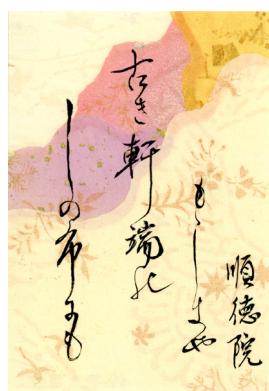 順徳院
もゝしきや
古き軒端の
しの布にも